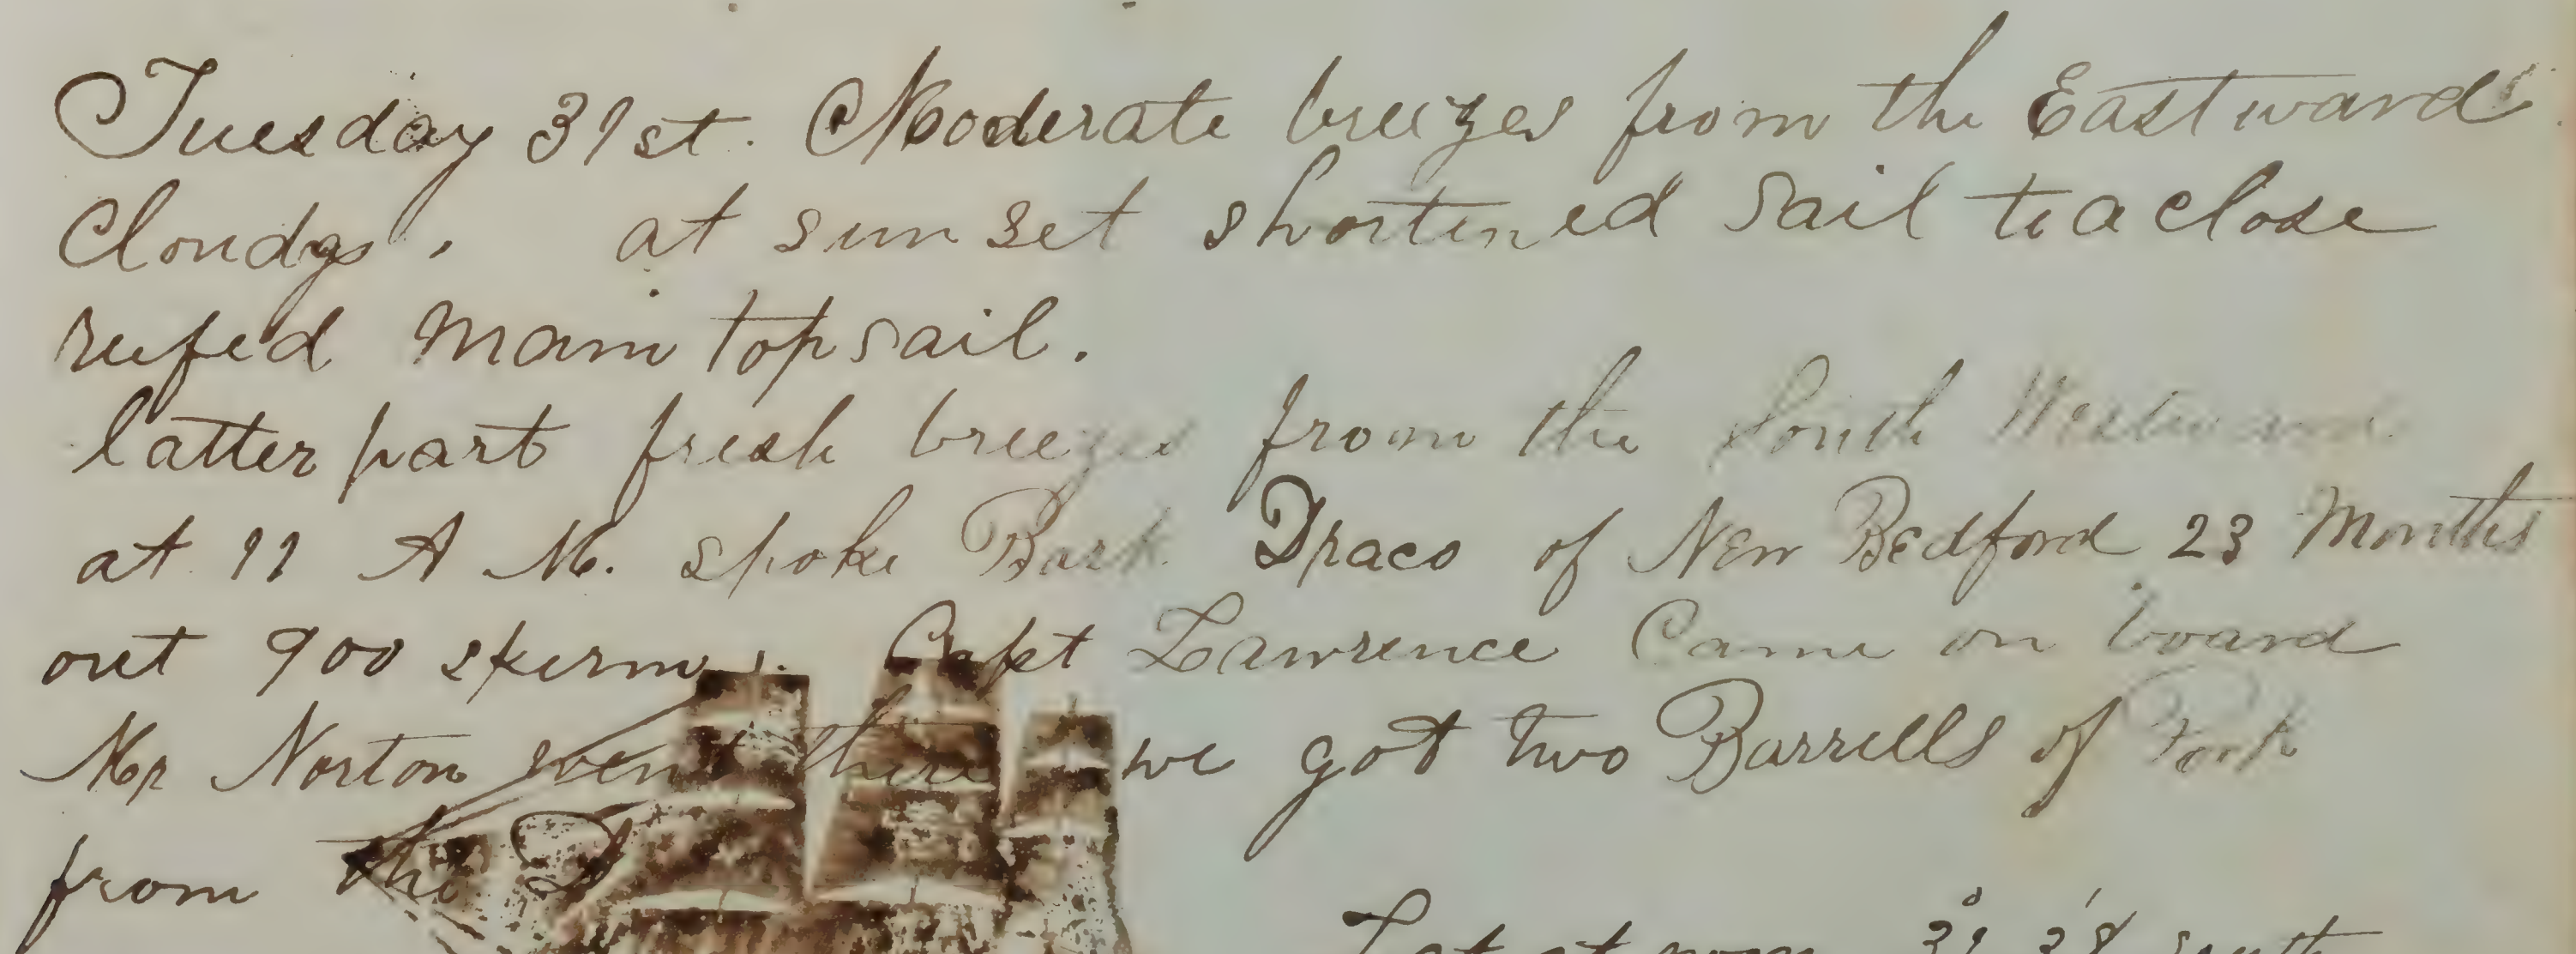 Tuesday 31st. Moderate breezes from the Eastward
Cloudy. at sunset shortened sail to a close
reefed main topsail.
latter part fresh breezes from the South Westward
at 11 A M. spoke Bark Draco of New Bedford 23 Months
out 900 sperm. Capt Lawrence Came on board
Mr Norton went there we got two Barrells of Pork
from the D
Lat at noon south